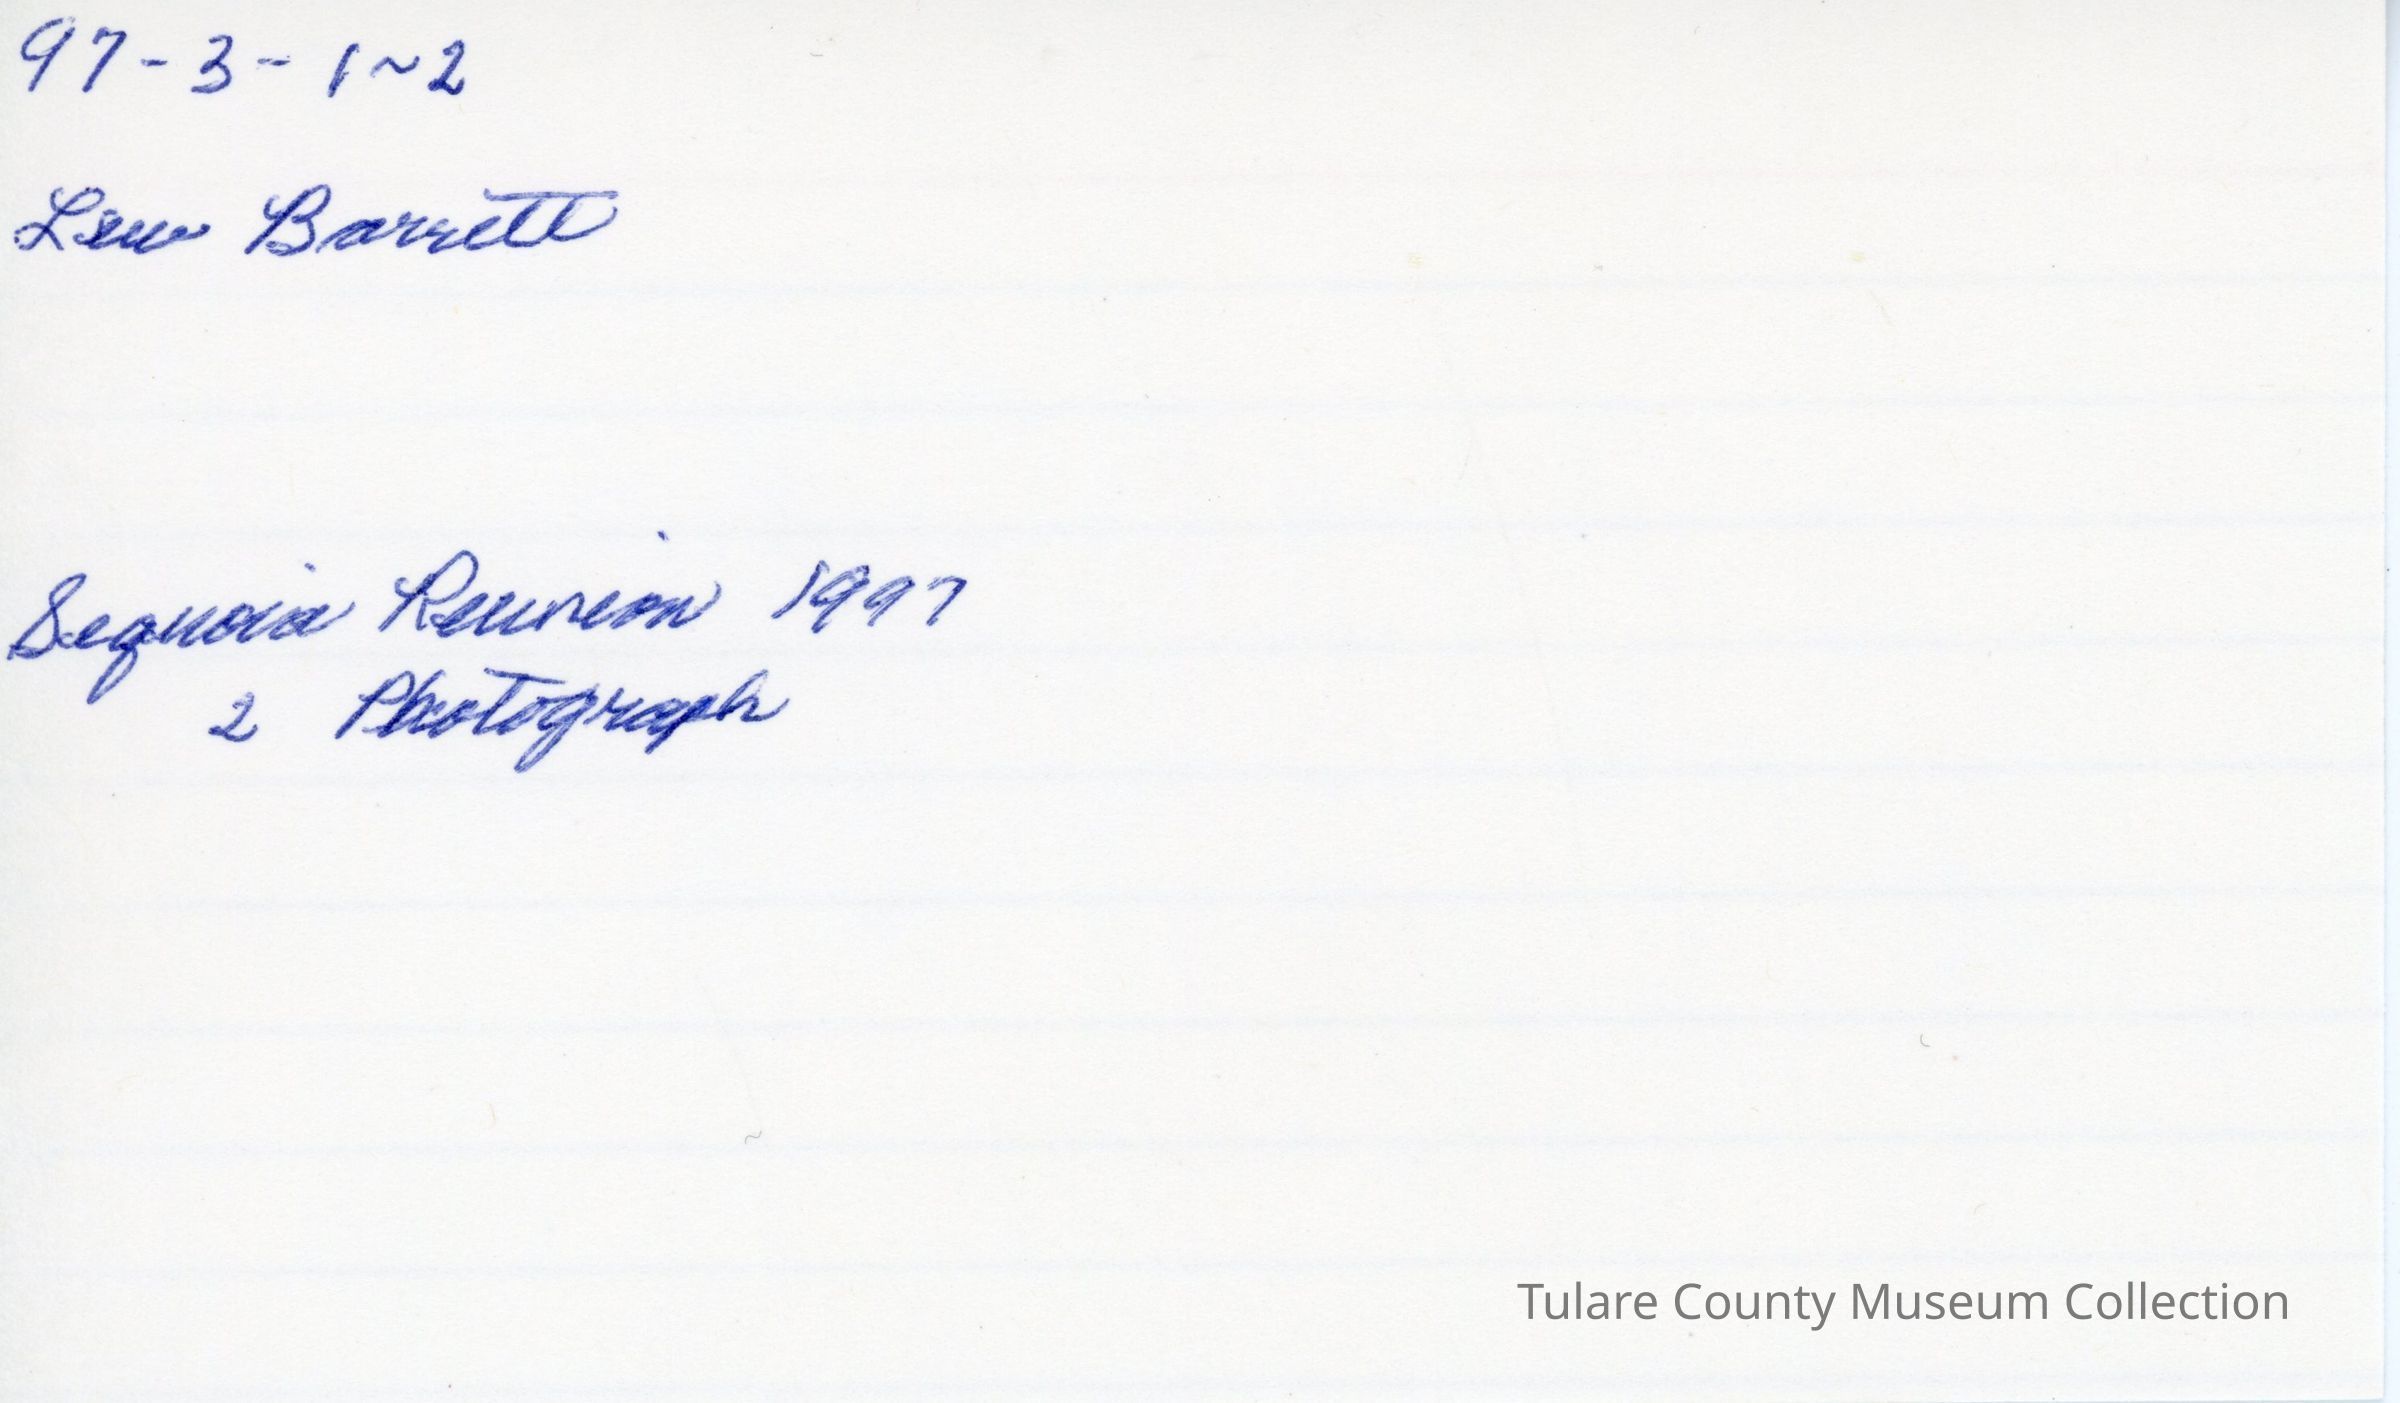 97-3-1~2
Lew Barrett
Sequoia Reunion 1997
2 Photograph
Tulare County Museum Collection